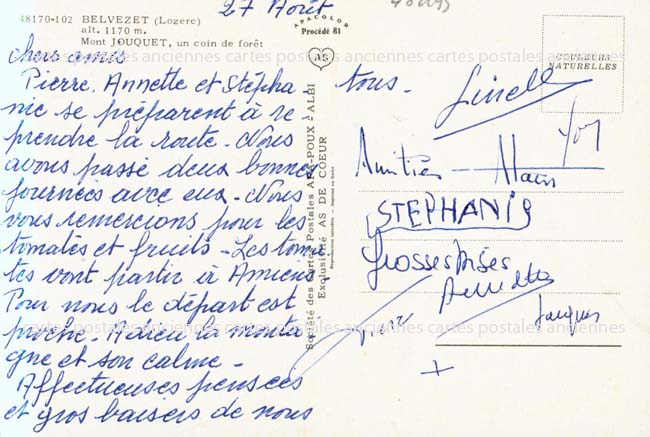 27 Août
48170-102 BELVEZET (Lozere)
alt. 1170 m.
Mont JOUQUET, un coin de forêt
APACOLOR
Procédé 81
AS
COULEURS
NATURELLES
chers amis
Pierre. Annette et Stépha
nie se préparent à re
prendre la route - Nous
avons passé deux bonnes
journées avec eux - Nous
vous remercions pour les
tomates et fruits - Les toma
tes vont partir à Amiens
Pour nous le départ est
proche - Adieu la monta
gne et son calme -
Affectueuses pensées
et gros baisers de nous
tous -
Amitiés Alain
STEPHANIE
Grosses bises
Annette
Jacques
Société des Cartes Postales APA-POUX - ALBI
Exclusivité AS DE COEUR
cartes postales anciennes cartes postales anciennes